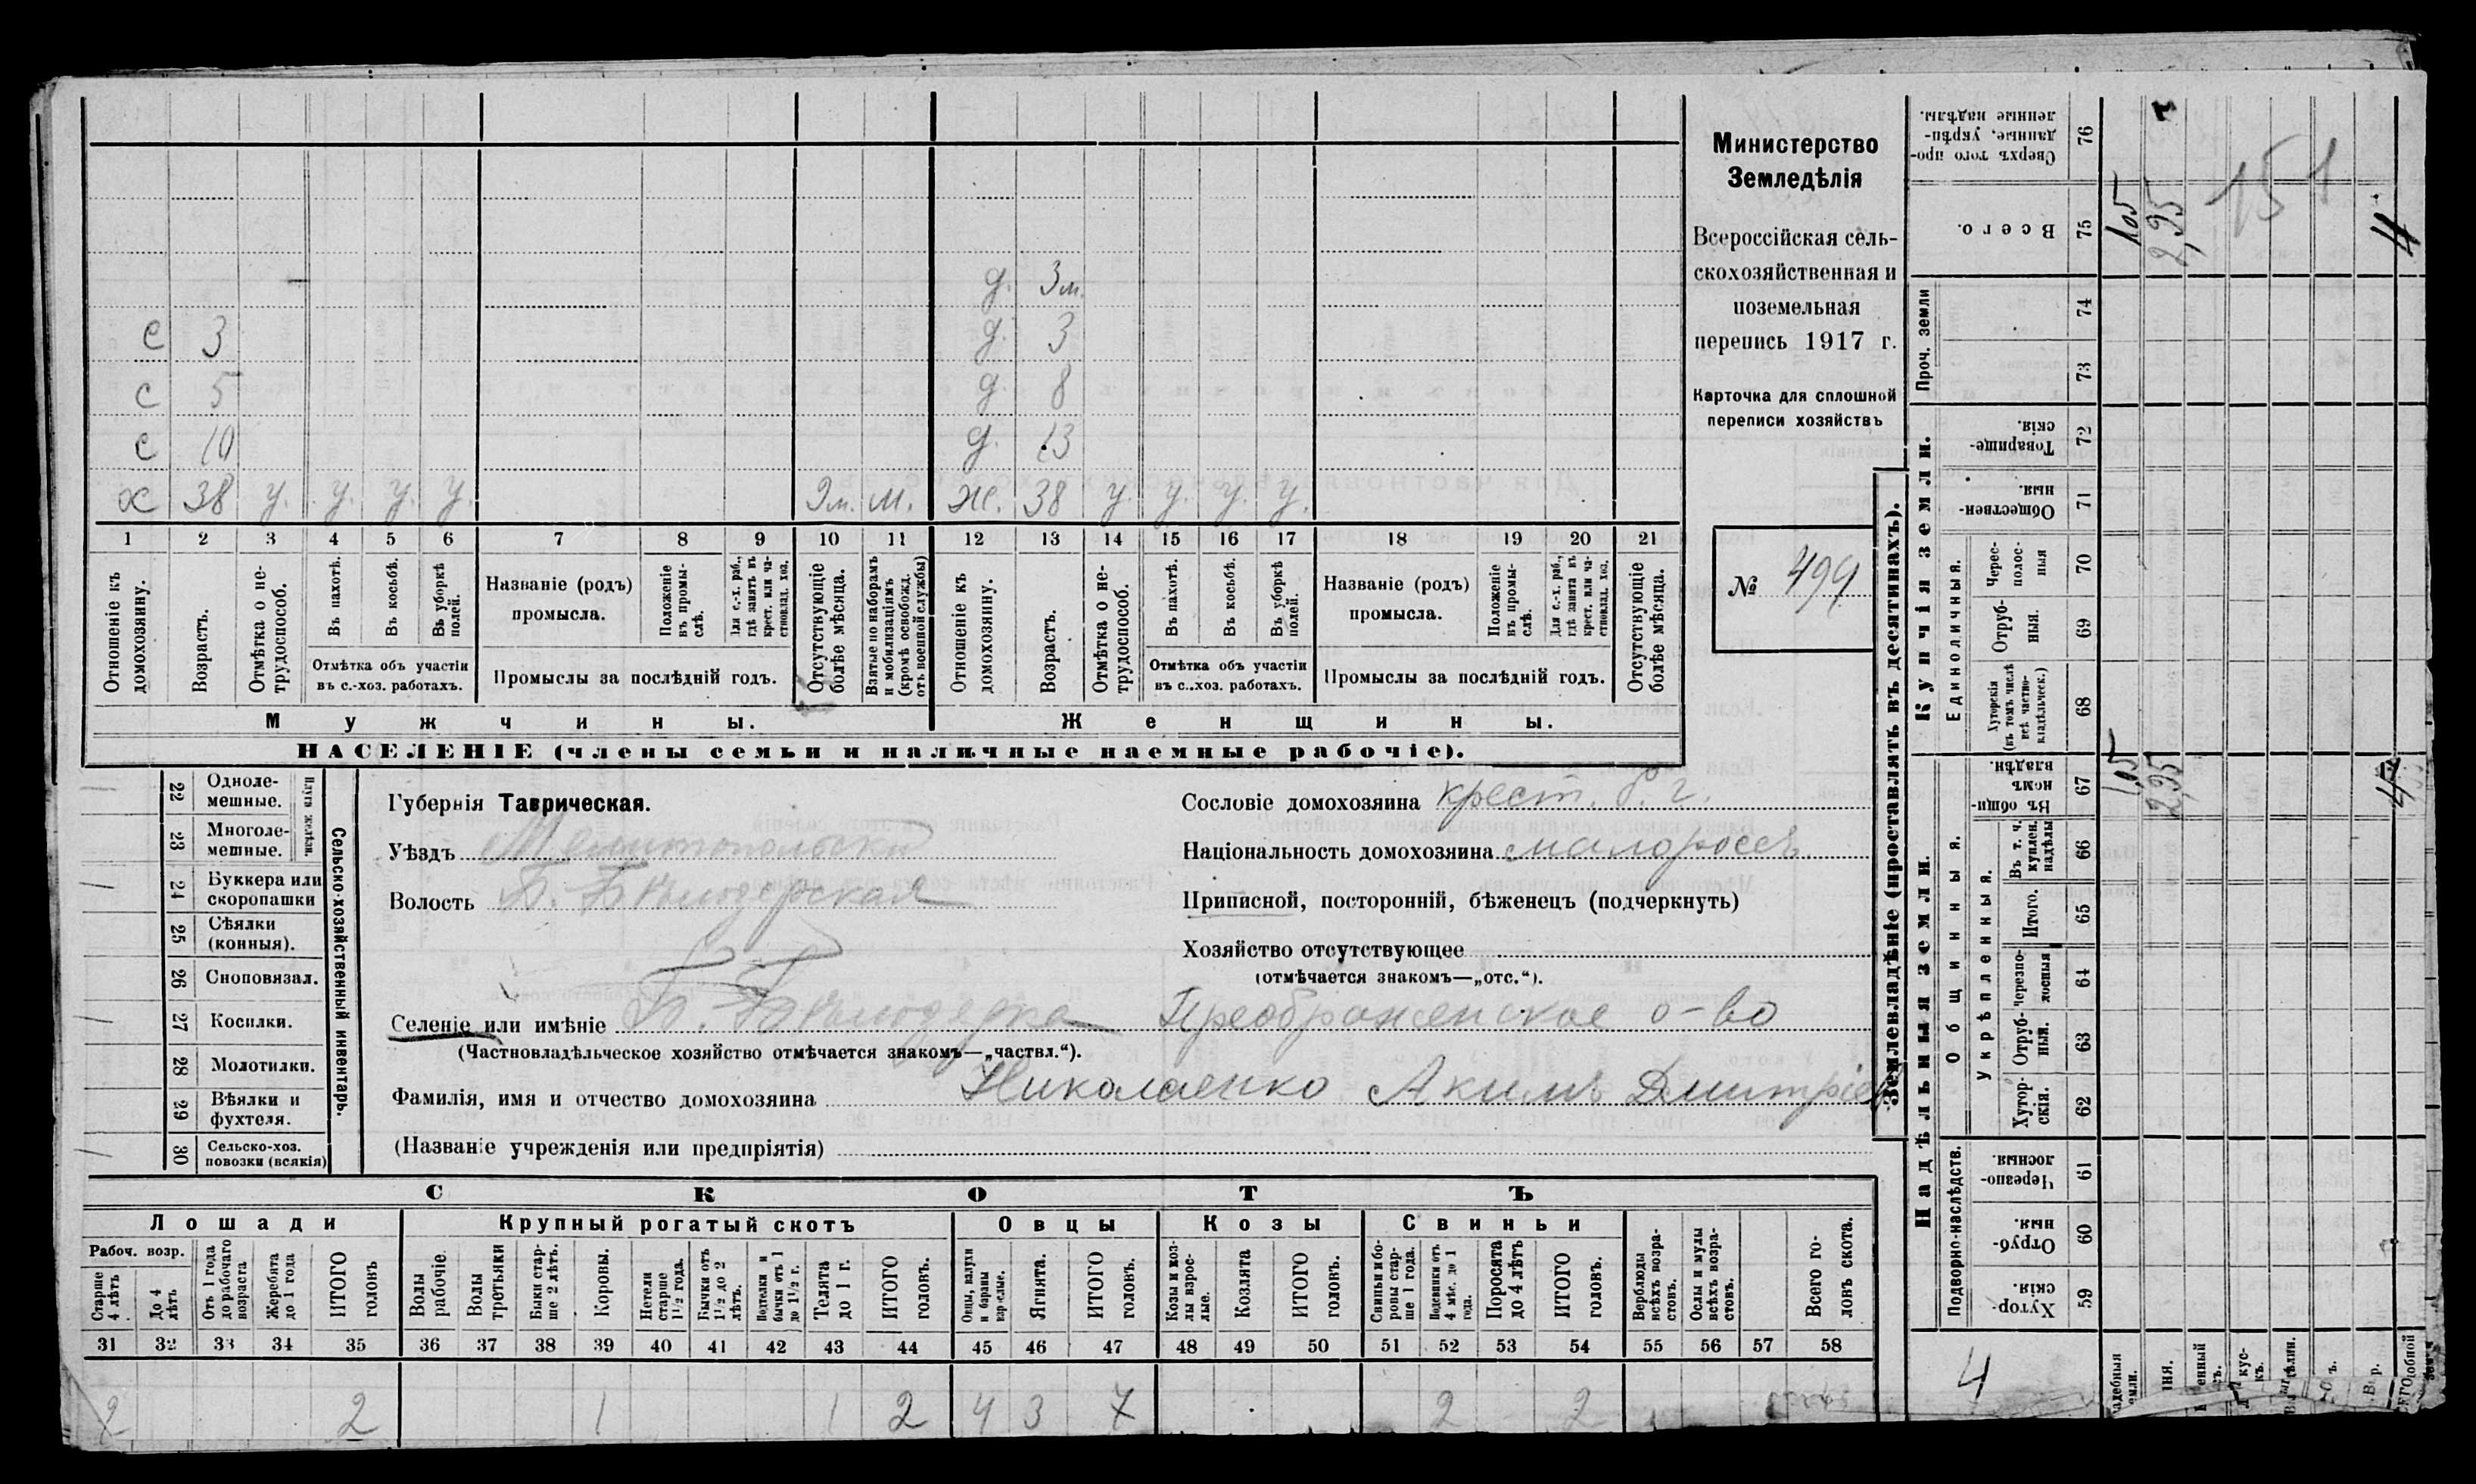 Министерство
Земледѣлія
Всероссійская сель-
скохозяйственная и
поземельная
перепись 1917 г.
Карточка для сплошной
переписи хозяйствъ
№ 499
д. 3 м.
с 3 д. 3
с 5 д. 8
с 10 д. 13
х 38 у. у. у. у. м. ж. 38 у. у. у. у.
1 2 3 4 5 6 7 8 9 10 11 12 13 14 15 16 17 18 19 20 21
Отношеніе къ домохозяину.
Возрастъ.
Отмѣтка о не-трудоспособ.
Въ пахотѣ.
Въ косьбѣ.
Въ уборкѣ полей.
Отмѣтка объ участіи
въ с.-хоз. работахъ.
Названіе (родъ)
промысла.
Положеніе въ промы-слѣ.
Для с.-х. раб., гдѣ занятъ въ крест. или ча-стновлад. хоз.
Промыслы за послѣдній годъ.
Отсутствующіе болѣе мѣсяца.
Взятые по наборамъ и мобилизаціямъ (кромѣ освобожд. отъ военной службы)
Отношеніе къ домохозяину.
Возрастъ.
Отмѣтка о не-трудоспособ.
Въ пахотѣ.
Въ косьбѣ.
Въ уборкѣ полей.
Отмѣтка объ участіи
въ с..хоз. работахъ.
Названіе (родъ)
промысла.
Положеніе въ промы-слѣ.
Для с.-х. раб., гдѣ занята въ крест. или ча-стновлад. хоз.
Промыслы за послѣдній годъ.
Отсутствующіе болѣе мѣсяца.
Мужчины. Женщины.
НАСЕЛЕНІЕ (члены семьи и наличные наемные рабочіе).
22 Одноле-мешные.
23 Многоле-мешные.
Плуга желѣзн.
24 Буккера или скоропашки
25 Сѣялки (конныя).
26 Сноповязал.
27 Косилки.
28 Молотилки.
29 Вѣялки и фухтеля.
30 Сельско-хоз. повозки (всякія)
Сельско-хозяйственный инвентарь.
Губернія Таврическая.
Уѣздъ Мелитопольскій
Волость Б. Бѣлозерская
Селеніе или имѣніе Б. Бѣлозерка Преображенское о-во
(Частновладѣльческое хозяйство отмѣчается знакомъ—„частвл.“).
Фамилія, имя и отчество домохозяина Николаенко Акимъ Дмитріев
(Названіе учрежденія или предпріятія)
Сословіе домохозяина крест.
Національность домохозяина малороссъ
Приписной, посторонній, бѣженецъ (подчеркнуть)
Хозяйство отсутствующее
(отмѣчается знакомъ—„отс.“).
СКОТЪ
Лошади Крупный рогатый скотъ Овцы Козы Свиньи
Рабоч. возр.
Старше 4 лѣтъ
До 4 лѣтъ
Отъ 1 года до рабочаго возраста
Жеребята до 1 года
ИТОГО головъ
Волы рабочіе
Волы третьяки
Быки стар-ше 2 лѣтъ.
Коровы.
Нетели старше 1½ года.
Бычки отъ 1½ до 2 лѣтъ.
Подтелки и бычки отъ 1 до 1½ г.
Телята до 1 г.
ИТОГО головъ.
Овцы, валухи и бараны взрослые.
Ягнята.
ИТОГО головъ.
Козы и коз-лы взрос-лые.
Козлята
ИТОГО головъ.
Свиньи и бо-ровы стар-ше 1 года.
Подсвинки отъ 4 мѣс. до 1 года.
Поросята до 4 лѣтъ
ИТОГО головъ.
Верблюды всѣхъ возра-стовъ.
Ослы и мулы всѣхъ возра-стовъ.
Всего го-ловъ скота.
31 32 33 34 35 36 37 38 39 40 41 42 43 44 45 46 47 48 49 50 51 52 53 54 55 56 57 58
2 2 1 1 2 4 3 7 2 2
Землевладѣніе (проставлять въ десятинахъ).
Купчія земли.
Надѣльныя земли.
Сверхъ того про-данные, укрѣп-ленные надѣлы. 76
Всего. 75
Проч. земли 74 73
Товарище-скія. 72
Обществен-ныя. 71
Единоличныя.
Черес-полос-ныя 70
Отруб-ныя. 69
Хуторскія (въ томъ числѣ всѣ частно-владѣльческ.) 68
Общинныя.
Въ общи-номъ владѣн. 67
Укрѣпленныя.
Въ т. ч. куплен. надѣлы 66
Итого. 65
Черезпо-лосныя 64
Отруб-ныя. 63
Хутор-скія. 62
Подворно-наслѣдств.
Черезпо-лосныя. 61
Отруб-ныя. 60
Хутор-скія. 59
1,05 2,95 151 4
1,05 2,95 4
4